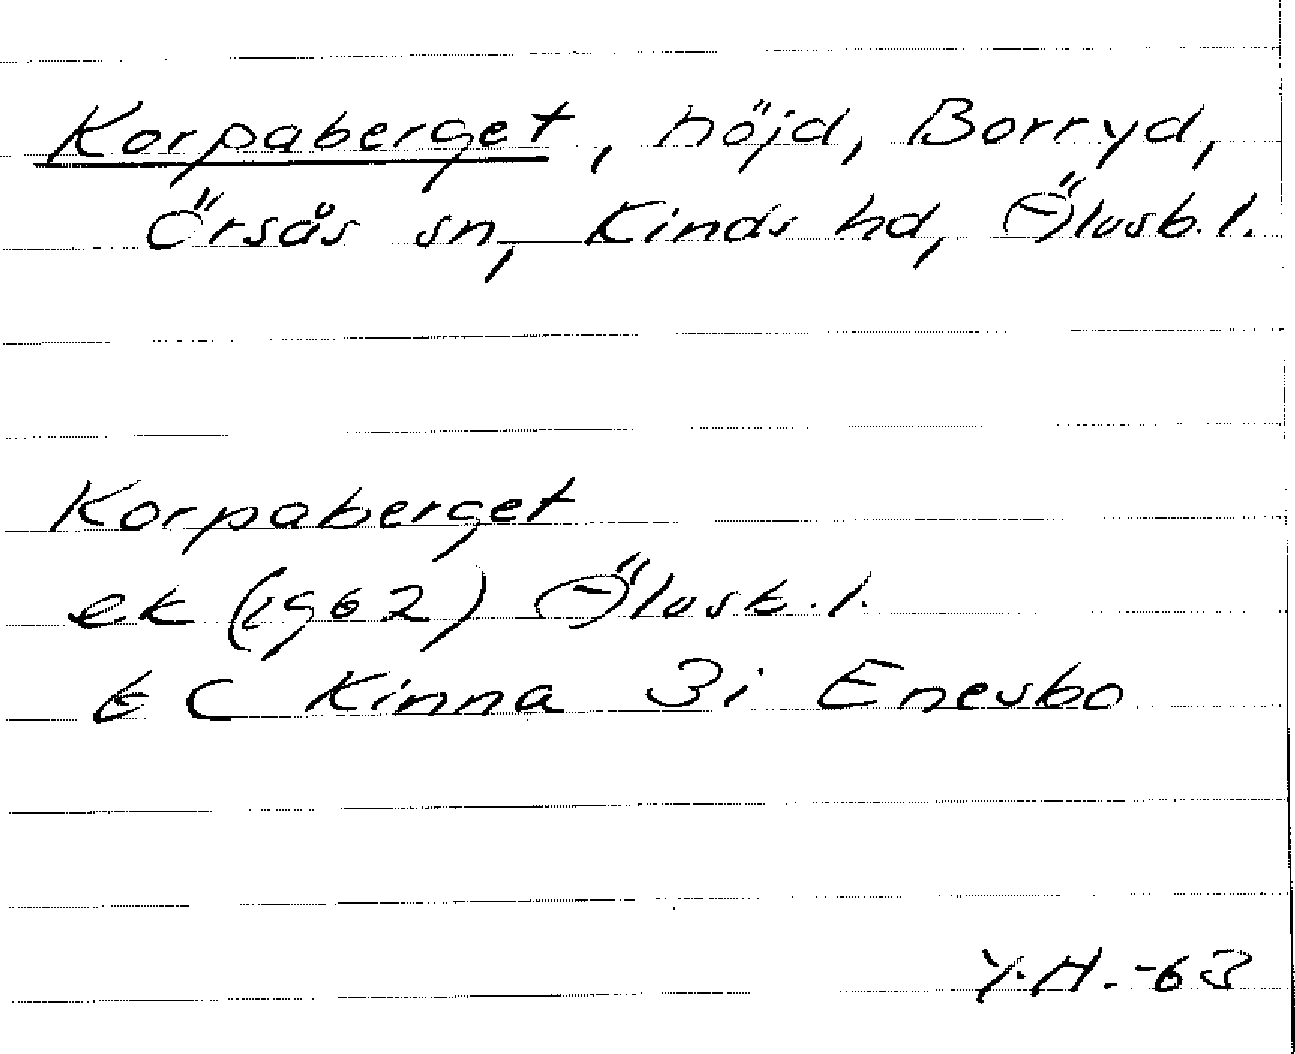 Korpaberget, höjd, Borryd,
Örsås sn, Kinds hd, Älvsb. l.
Korpaberget
ek (1962) Älvsb. l.
6 C Kinna 3i Enesbo
Y.H. -63